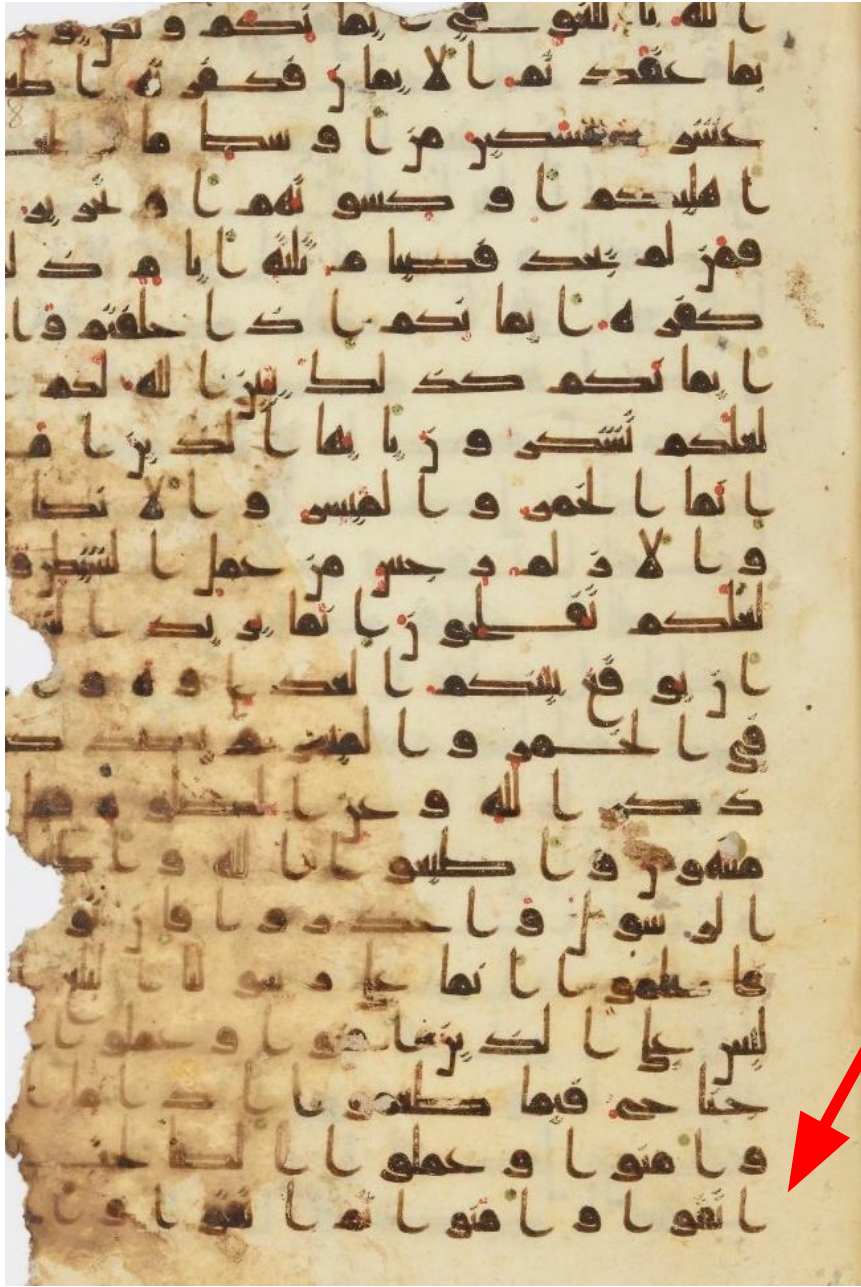 الله باللغو في ايمنكم ولكن يو
بما عقدتم الايمن فكفرته اطعا
عشرة مسكين من اوسط ما تطعمو
اهليكم او كسوتهم او تحرير
فمن لم يجد فصيام ثلثة ايام ذلك
كفرة ايمنكم اذا حلفتم وا
ايمنكم كذلك يبين الله لكم
لعلكم تشكرون يايها الذين
انما الخمر والميسر والانصا
والازلم رجس من عمل الشيطن
لعلكم تفلحون انما يريد الشـ
ان يوقع بينكم العدوة و
في الخمر والميسر ويصدكم
ذكر الله وعن الصلوة فهل
منتهون واطيعوا الله واطـ
الرسول واحذروا فان تو
فاعلموا انما على رسولنا البلـ
ليس على الذين امنوا وعملوا ا
جناح فيما طعموا اذا ما ا
وامنوا وعملوا الصلحت
اتقوا وامنوا ثم اتقوا وا